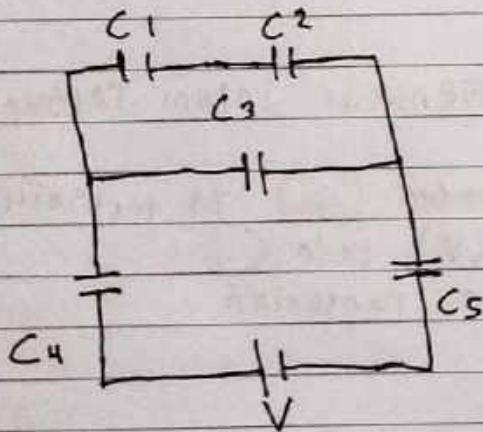 C1 C2
C3
C4
C5
V